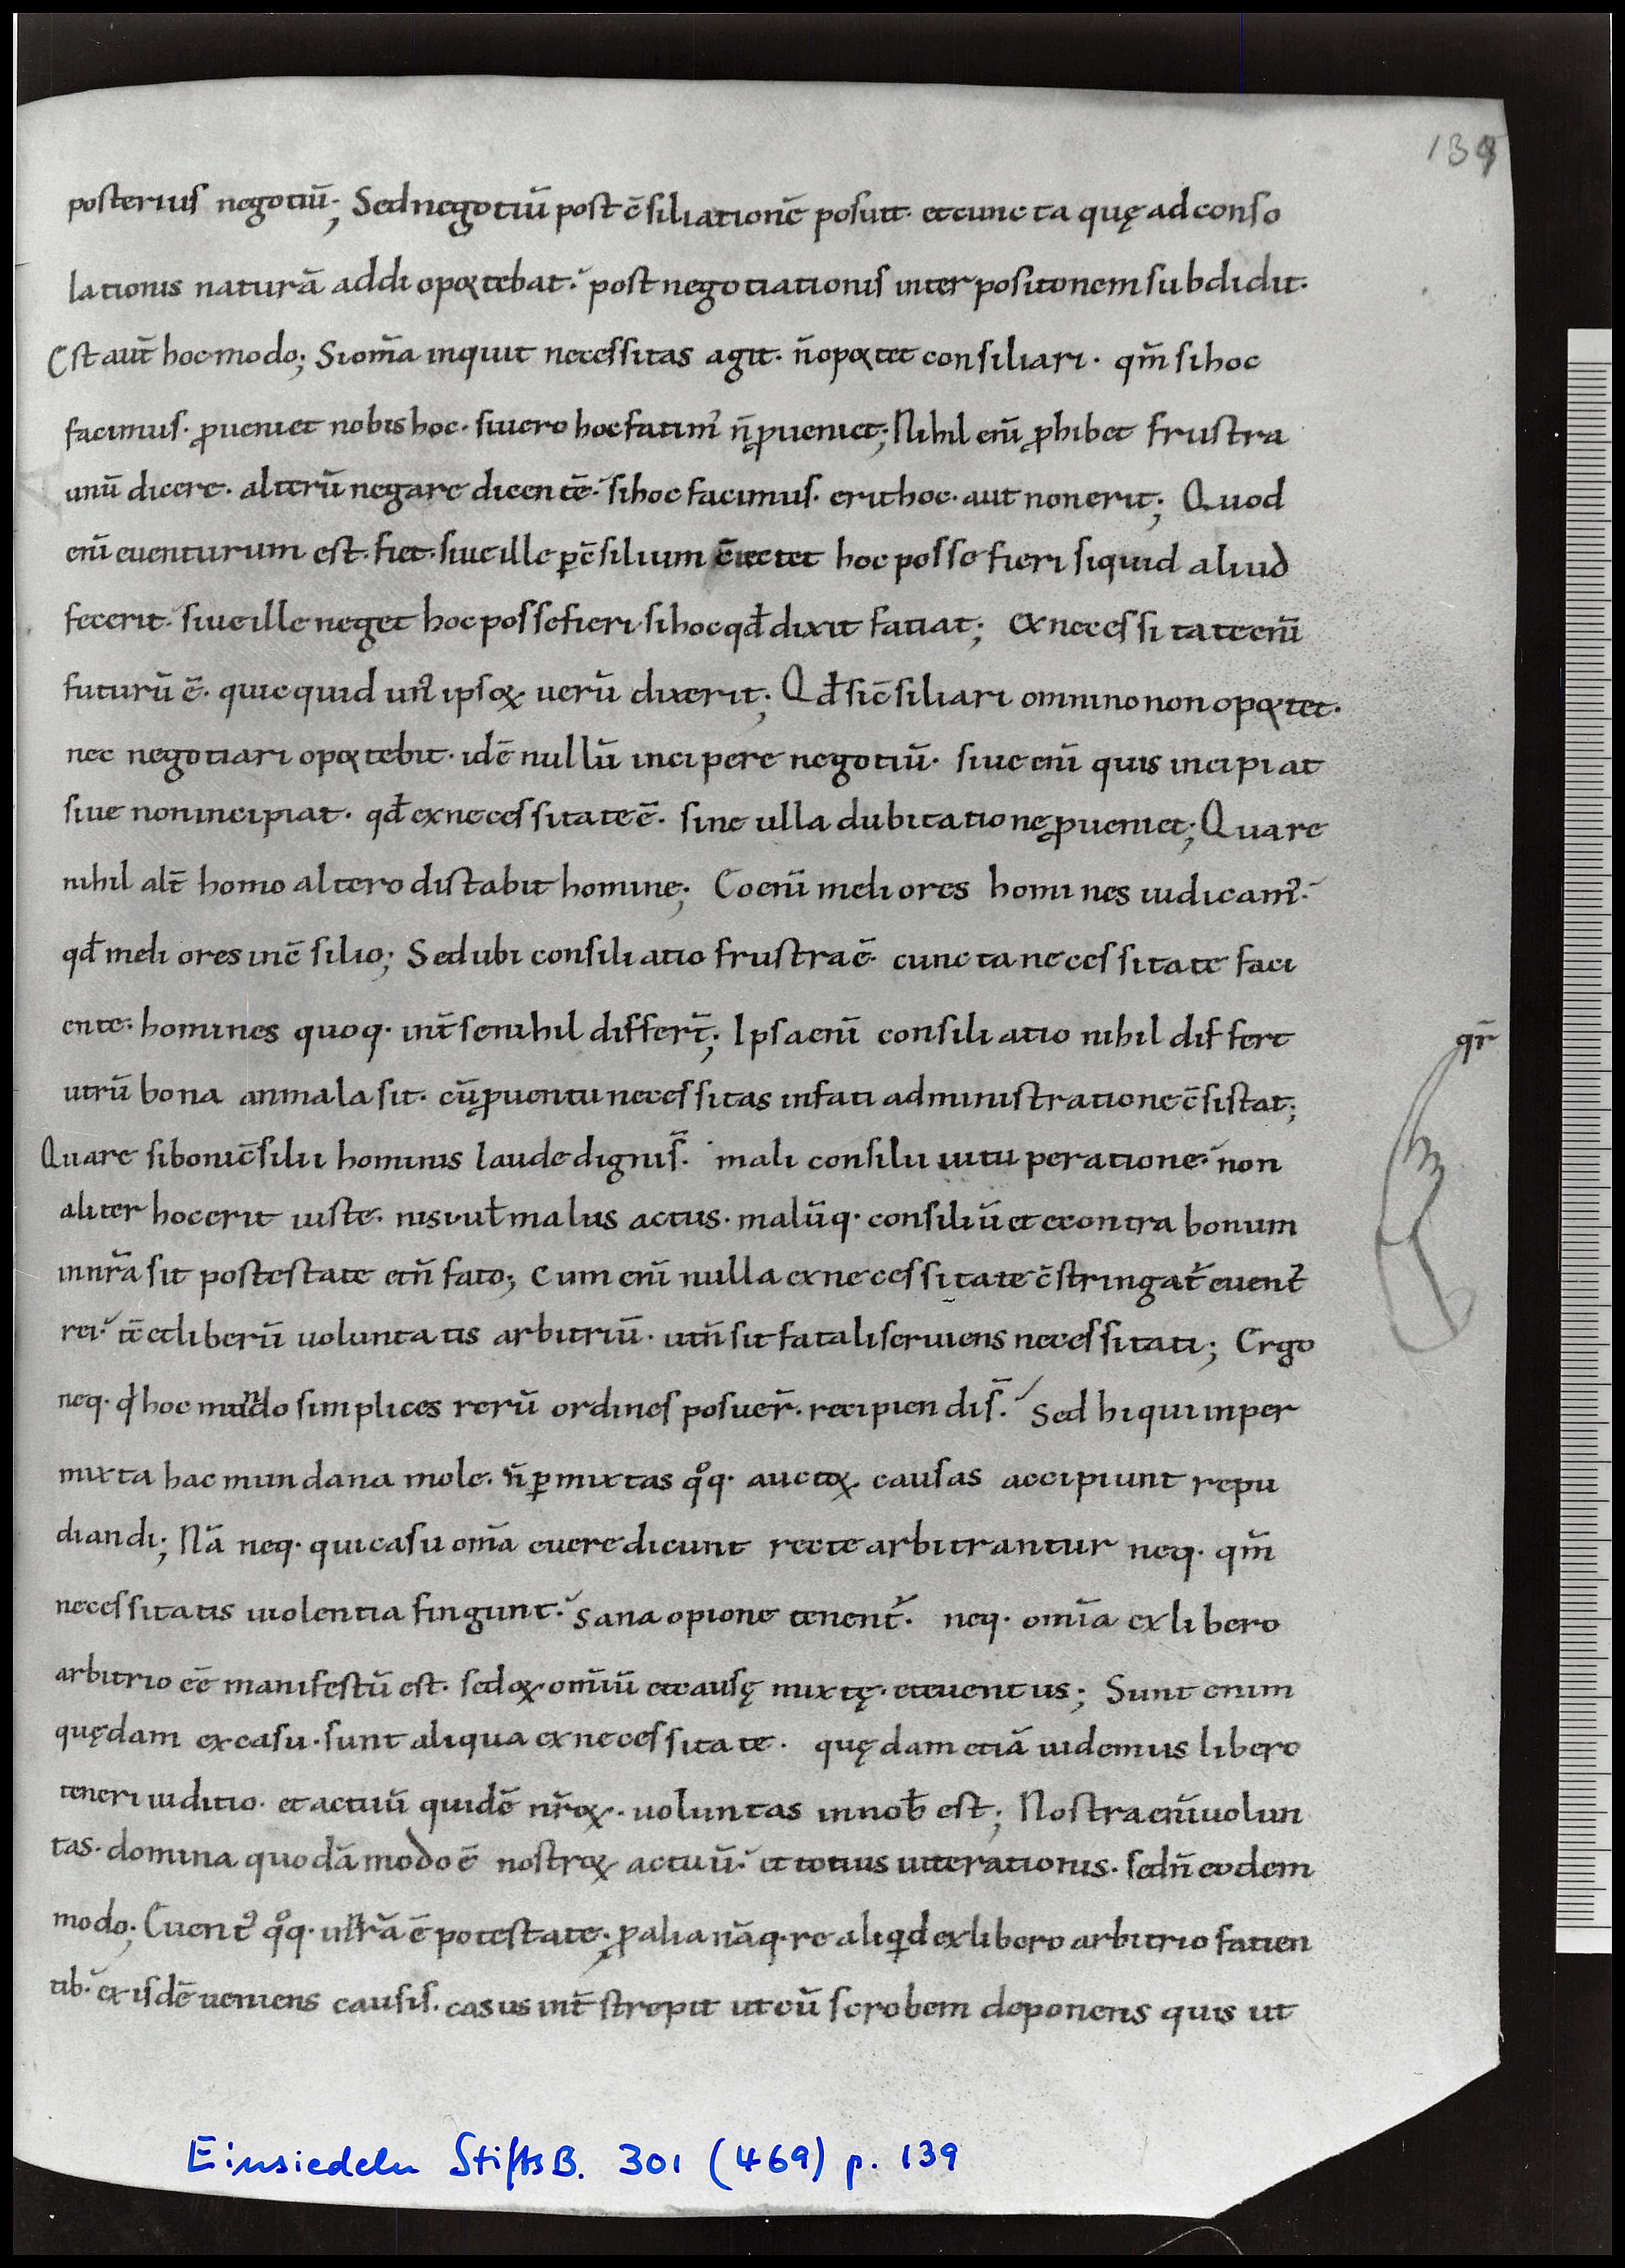 139
posterius negotiū; Sed negotiū post c̄siliationē posuit· et cuncta quę ad conso
lationis naturā addi oportebat· post negotiationis interpositonem subdidit·
Est aūt hoc modo; Si om̄a inquit necessitas agit· n̄ oportet consiliari· qm̄ si hoc
facimus· ꝓueniet nobis hoc· si uero hoc fatim᾽ n̄ ꝓueniet; Nihil eni͂ ꝓhibet frustra
unū dicere· alterū negare dicentē· si hoc facimus· erit hoc· aut non erit; Quod
eni͂ euenturum est· fiet· siue ille ꝑ c̄silium hoc posse fieri si quid aliud
fecerit· siue ille neget hoc posse fieri· si hoc qđ dixit fatiat; Ex necessitate eni͂
futurū ē· quicquid un᾽ ipsoꝝ uerū dixerit; Qđ si c̄siliari omnino non oportet·
nec negotiari oportebit· idē nullū incipere negotiū· siue eni͂ quis incipiat
siue non incipiat· qđ ex necessitate ē· sine ulla dubitatione ꝓueniet; Quare
nihil alt̄ homo altero distabit homine; Eo eni͂ meliores homines iudicam᾽·
qđ meliores in c̄silio; Sed ubi consiliatio frustra ē· cuncta necessitate faci
ente· homines quoq· int̄ se nihil differt̄; Ipsa eni͂ consiliatio nihil differt
utrū bona an mala sit· cū ꝓuentu necessitas in fati administratione c̄sistat;
qr̄
Quare si boni c̄silii hominis laude digni s̄· mali consilii uituperatione· non
aliter hoc erit iuste· nisi ut malus actus· malūq· consiliū et econtra bonum
in nr̄a sit postestate et n̄ fato; Cum eni͂ nulla ex necessitate c̄stringat̄ euent᾽
rei· tc̄ et liberū uoluntatis arbitriū· ut n̄ sit fatali seruiens necessitati; Ergo
neq· q hoc mundo simplices rerū ordines posuer̄· recipiendi s̄· Sed hi qui in per
mixta hac mundana mole· n̄ ꝑmixtas qͦq· auctoꝝ causas accipiunt repu
diandi; Nā neq· qui casu om̄a euere dicunt recte arbitrantur neq· qm̄
necessitatis uiolentia fingunt· sana opione tenent̄· neq· om̄ia ex libero
arbitrio eē manifestū est· sed oꝝ om̄iū et causę mixtę· et euentus; Sunt enim
quędam ex casu· sunt aliqua ex necessitate· quędam etiā uidemus libero
teneri iuditio· et actuū quidē nr̄oꝝ· uoluntas in nob̄ est; Nostra eni͂ uolun
tas· domina quodā modo ē nostroꝝ actuū· et totius uite rationis· sed n̄ eodem
modo; Euent᾽ qͦq· in nr̄ā ē potestate; ꝓ alia nāq· re aliqid ex libero arbitrio fatien
tib· ex isdē ueniens causis· casus int̄strepit ut cū scrobem deponens quis ut
Einsiedeln StiftsB. 301 (469) p. 139